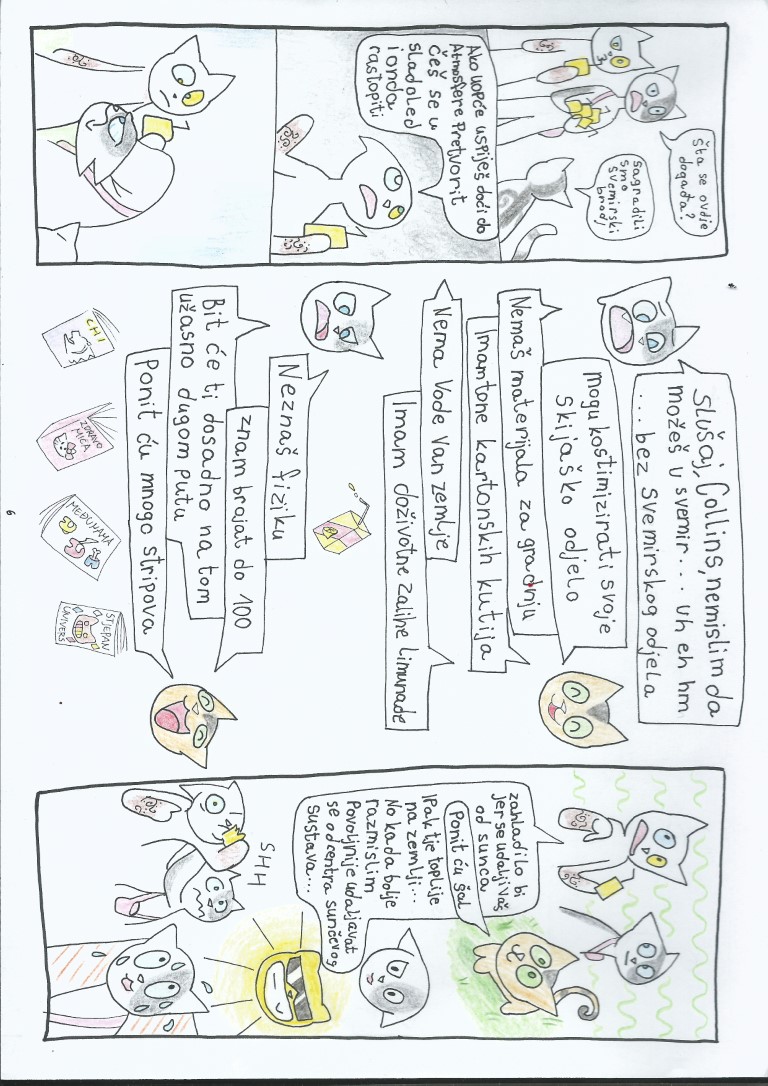 Šta se ovdje
događa?
Sagradili
smo
svemirski
brod
Ako uopće uspiješ doći do
Atmosfere Pretvorit
ćeš se u
sladoled
i onda
rastopiti
Slušaj, Collins, nemislim da
možeš u svemir... uh eh hm
... bez svemirskog odjela
mogu kostimizirati svoje
skijaško odjelo
Nemaš materijala za gradnju
Imam tone kartonskih kutija
Nema vode van zemlje
Imam doživotne zalihe limunade
Neznaš fiziku
znam brojat do 100
Bit će ti dosadno na tom
užasno dugom putu
Ponit ću mnogo stripova
CHI
ZDRAVO
MICA
MEĐUMAMA
STJEPAN
UNIVERS
6
zahladilo bi
jer se udaljivaš
od sunca
Ponit ću šal
Ipak tje toplije
na zemlji...
No kada bolje
razmislim
Povoljnije udaljavat
se od centra sunčevog
sustava...
SHH